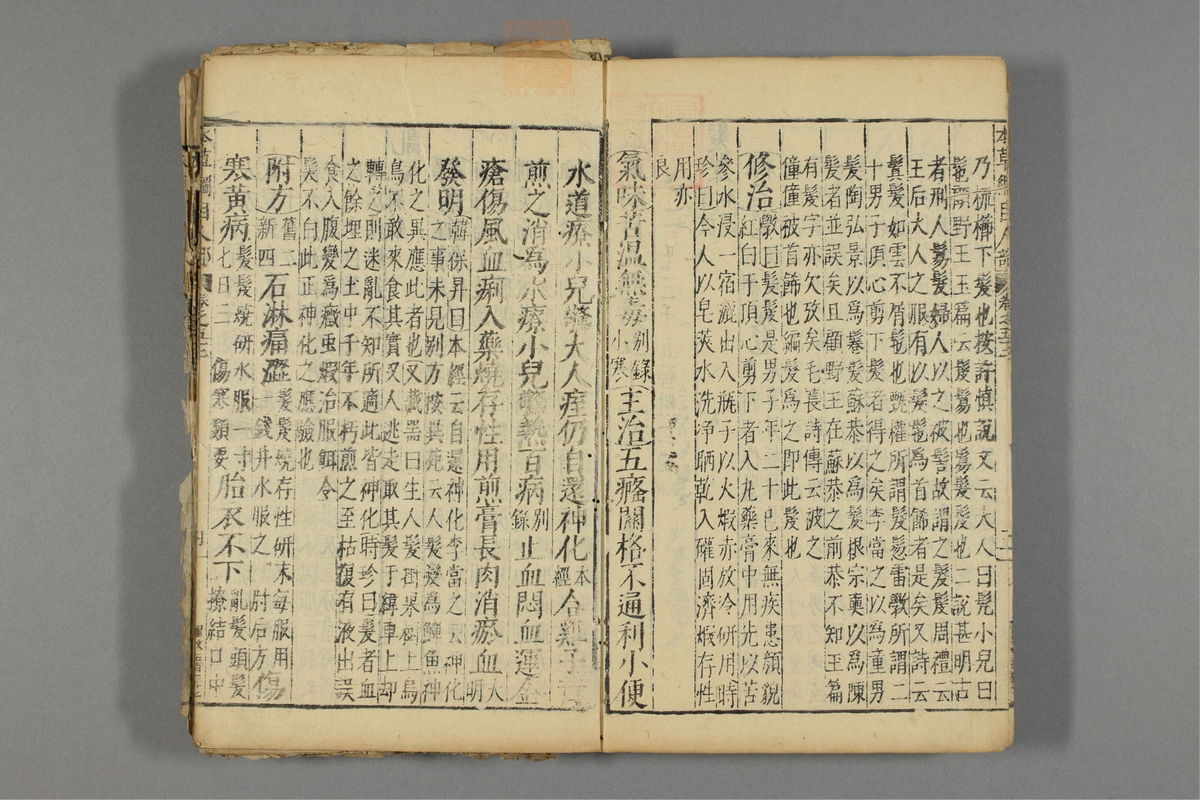 本草綱目人部 卷之五十二
乃梳櫛下髮也按許慎說文云大人曰髡小兒曰
髢顧野王玉篇云髲鬄也鬄髮也二說甚明古
者刑人鬄髮婦人以之被髻故謂之髲鬄周禮云
王后夫人之服有以髮髢爲首飾者是矣又詩云
鬒髮如雲不屑髢也甄權所謂髮髲雷斅所謂二
十男子頂心剪下髮者得之矣李當之以爲童男
髮陶弘景以爲鬈髮蘇恭以爲髮根宗奭以爲陳
髮者並誤矣且顧野王在蘇恭之前恭不知王篇
有髲字亦欠攷矣毛萇詩傳云被之
僮僮被首飾也編髮爲之即此髲也
修治斅曰髮髲是男子年二十已來無疾患顔貌
紅白于頂心剪下者入丸藥膏中用先以苦
參水浸一宿漉出入瓶子以火煅赤放冷研用時
珍曰今人以皂莢水洗浄晒乾入罐固濟煅存性
用亦
良
氣味苦温無毒别錄小寒主治五癃關格不通利小便
水道療小兒驚大人痓仍自還神化本經合雞子黃
煎之消爲水療小兒驚熱百病别錄止血悶血運金
瘡傷風血痢入藥燒存性用煎膏長肉消瘀血大明
發明韓保昇曰本經云自還神化李當之云神化
之事未見别方按異苑云人髮變爲鱓魚神
化之異應此者也又藏器曰生人髮掛果樹上烏
鳥不敢來食其實又人逃走取其髮于緯車上却
轉之則迷亂不知所適此皆神化時珍曰髮者血
之餘埋之土中千年不朽煎之至枯復有液出誤
食入腹變爲癥虫煅治服餌令
髮不白此正神化之應驗也
附方舊二新四石淋痛澀髮髲燒存性研末每服用一錢井水服之肘后方傷
寒黃病髮髲燒研水服一寸七日三傷寒類要胎衣不下亂髮頭髮撩結口中